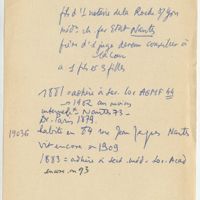 fils d'1 notaire de la Roche s/Yon
méd. ch. fer Etat Nantes
frère d'1 juge devenu conseiller à
a 1 fils et 3 filles
1881 = adhère à soc. loc AGMF 44
→ 1902 au moins
Nantes 73 -
Dr. Paris 1879.
19036 habite en 84 rue Jean Jacques Nantes
vit encore en 1909
1883 = adhère à scté. méd. loc. Acad
encore en 93